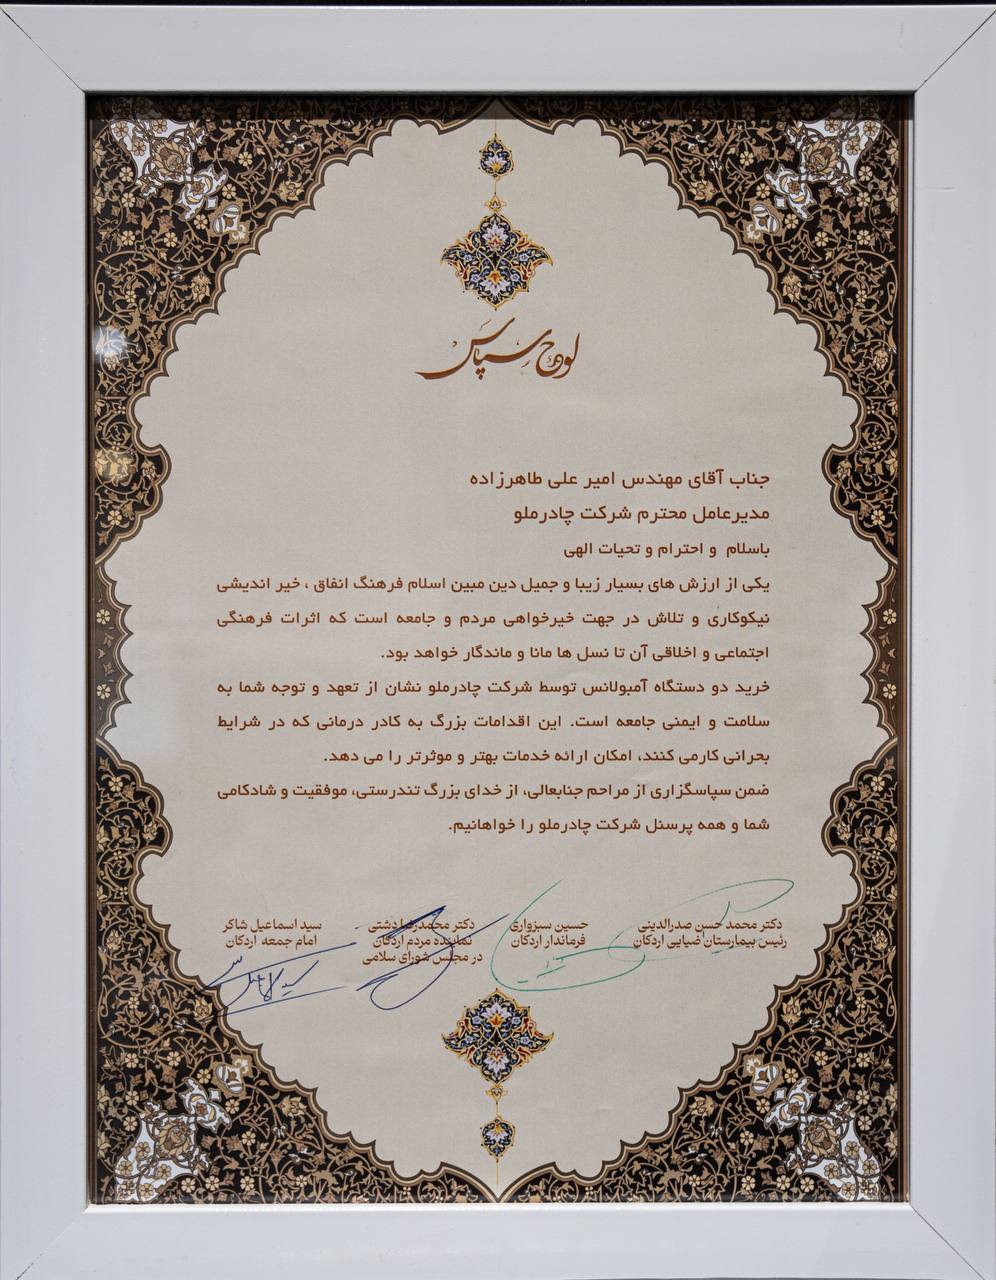 لوح سپاس
جناب آقای مهندس امیر علی طاهرزاده
مدیرعامل محترم شرکت چادرملو
باسلام و احترام و تحیات الهی
یکی از ارزش های بسیار زیبا و جمیل دین مبین اسلام فرهنگ انفاق ، خیر اندیشی
نیکوکاری و تلاش در جهت خیرخواهی مردم و جامعه است که اثرات فرهنگی
اجتماعی و اخلاقی آن تا نسل ها مانا و ماندگار خواهد بود.
خرید دو دستگاه آمبولانس توسط شرکت چادرملو نشان از تعهد و توجه شما به
سلامت و ایمنی جامعه است. این اقدامات بزرگ به کادر درمانی که در شرایط
بحرانی کارمی کنند، امکان ارائه خدمات بهتر و موثرتر را می دهد.
ضمن سپاسگزاری از مراحم جنابعالی، از خدای بزرگ تندرستی، موفقیت و شادکامی
شما و همه پرسنل شرکت چادرملو را خواهانیم.
دکتر محمد حسن صدرالدینی
رئیس بیمارستان ضیایی اردکان
حسین سبزواری
فرماندار اردکان
دکتر محمدرضا دشتی
نماینده مردم اردکان
در مجلس شورای سلامی
سید اسماعیل شاکر
امام جمعه اردکان